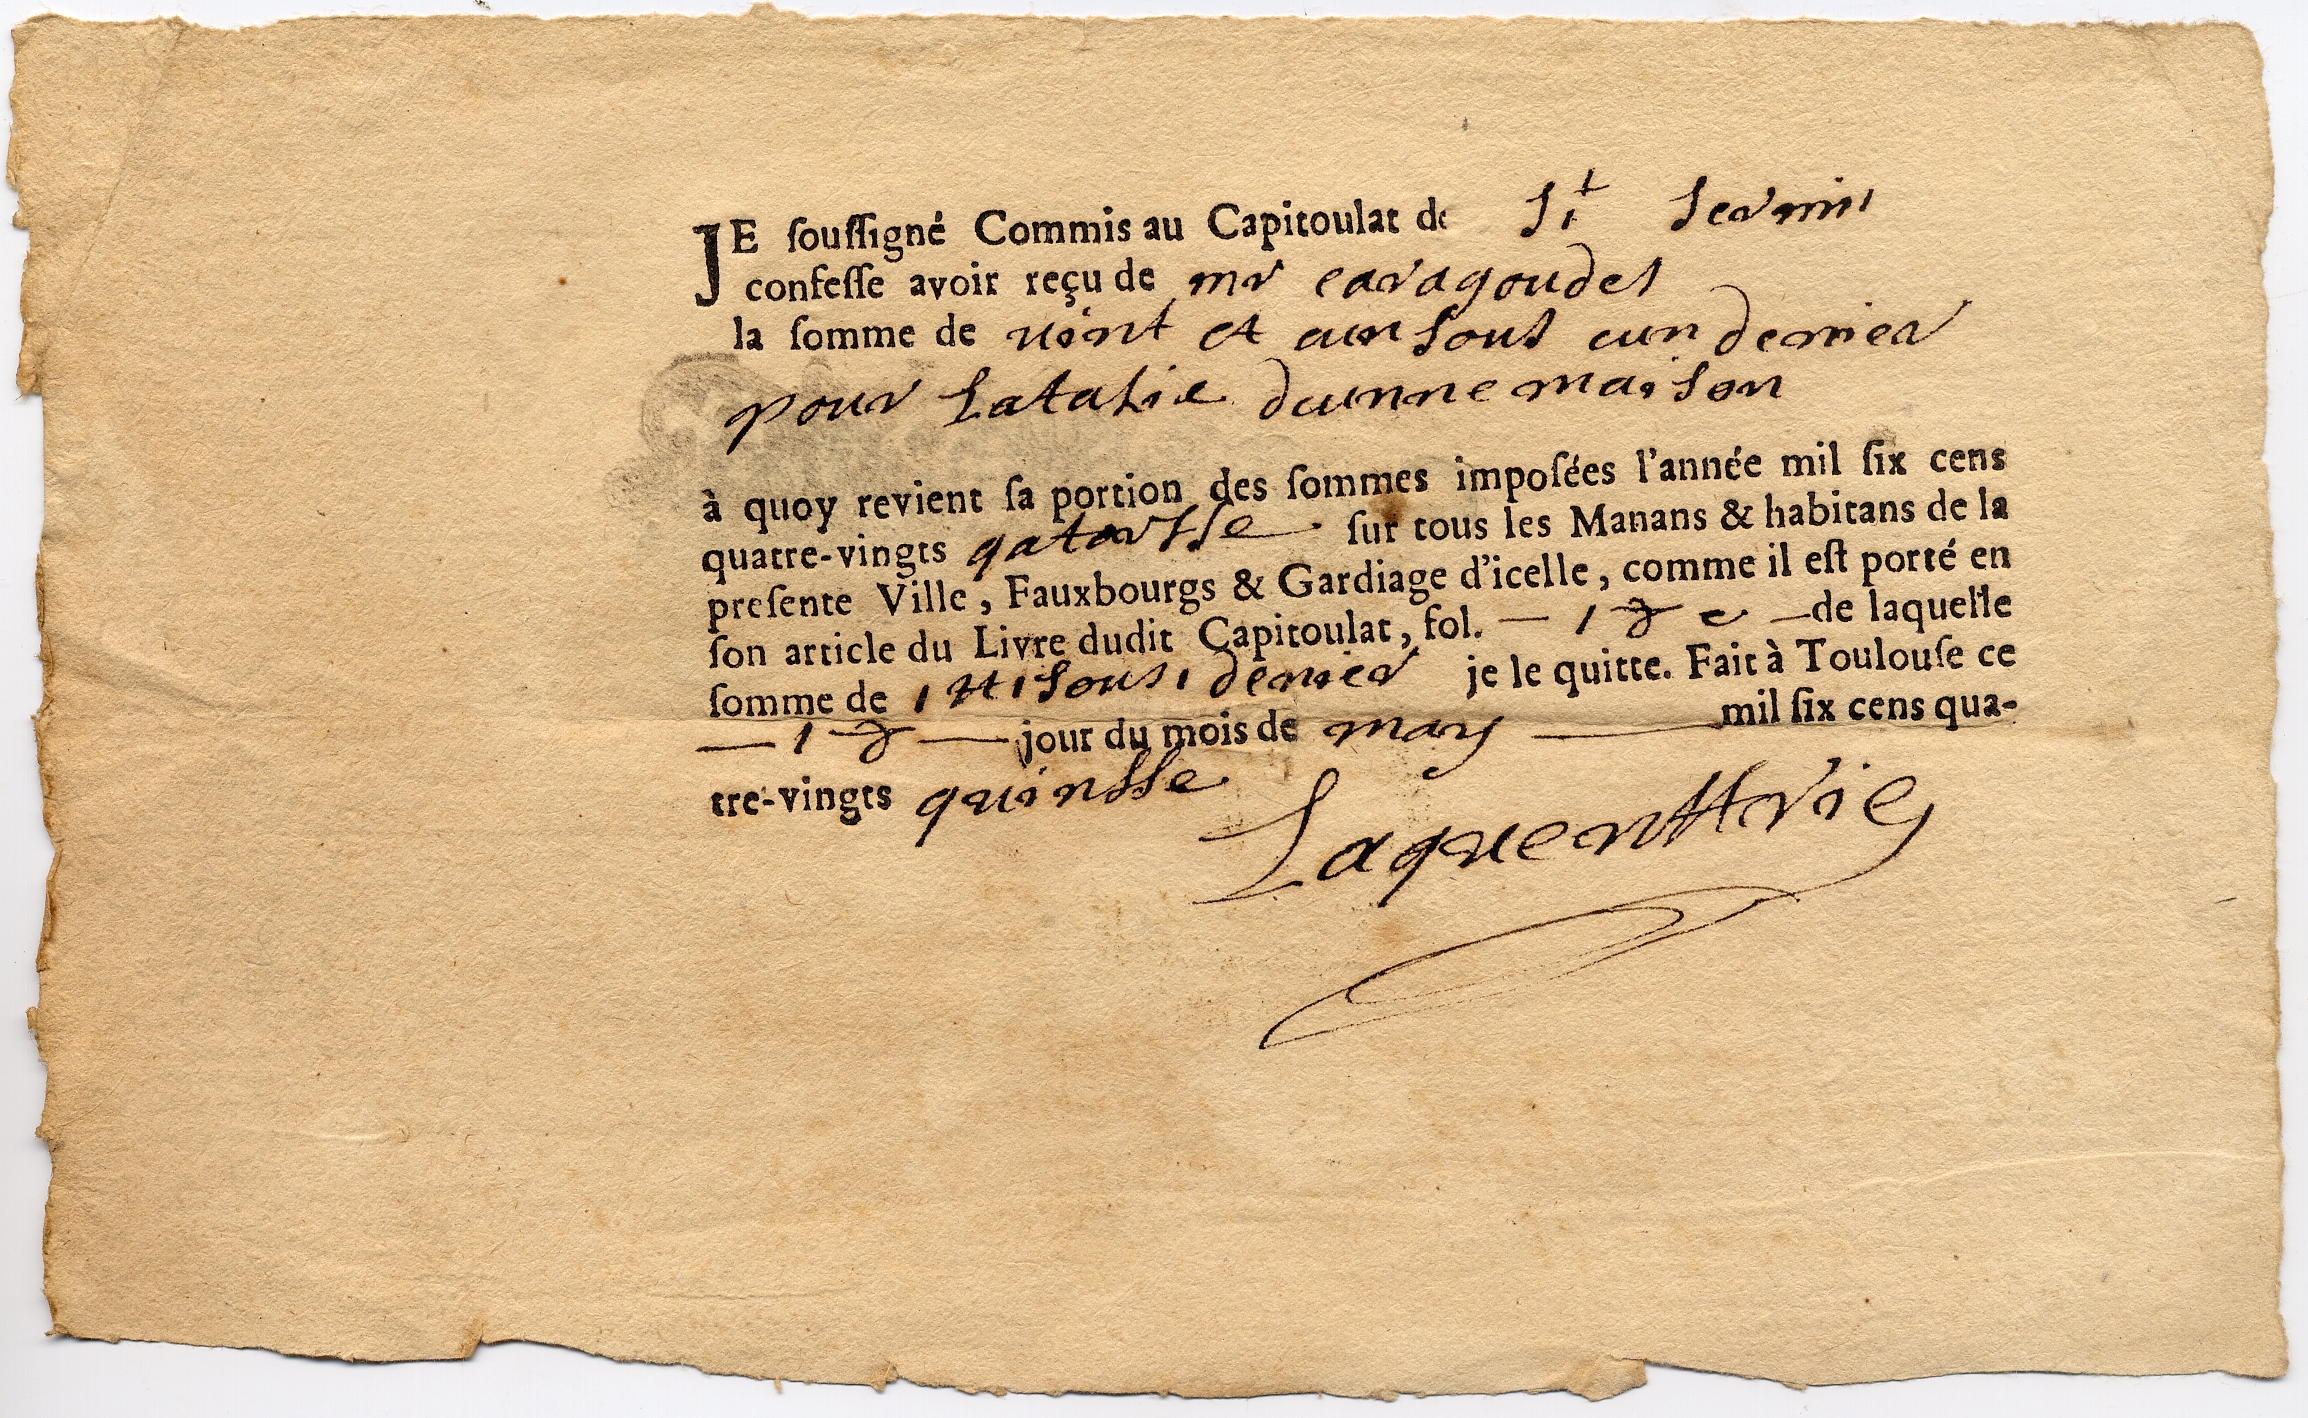 JE ſouſſigné Commis au Capitoulat de St Sernin
confeſſe avoir reçu de mr caragoudes
la ſomme de vint et un sous un denier
pour la talie dunne maison
à quoy revient ſa portion des ſommes impoſées l'année mil ſix cens
quatre-vingts qatorsse ſur tous les Manans & habitans de la
preſente Ville, Fauxbourgs & Gardiage d'icelle, comme il eſt porté en
ſon article du Livre dudit Capitoulat, fol. de laquelle
ſomme de sous 1 denier je le quitte. Fait à Toulouſe ce
jour du mois de may mil ſix cens qua-
tre-vingts quinsse